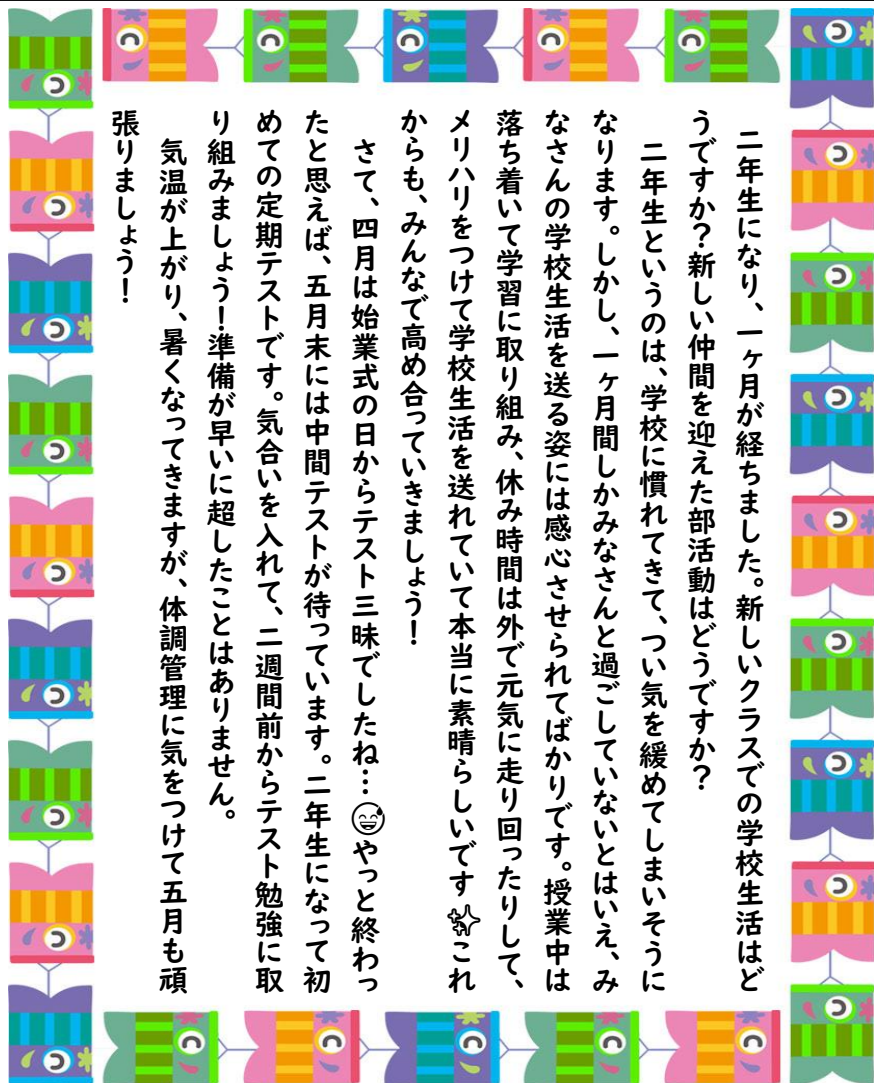 二年生になり、一ヶ月が経ちました。新しいクラスでの学校生活はど
うですか？新しい仲間を迎えた部活動はどうですか？
二年生というのは、学校に慣れてきて、つい気を緩めてしまいそうに
なります。しかし、一ヶ月間しかみなさんと過ごしていないとはいえ、み
なさんの学校生活を送る姿には感心させられてばかりです。授業中は
落ち着いて学習に取り組み、休み時間は外で元気に走り回ったりして、
メリハリをつけて学校生活を送れていて本当に素晴らしいです✨これ
からも、みんなで高め合っていきましょう！
さて、四月は始業式の日からテスト三昧でしたね…😅やっと終わっ
たと思えば、五月末には中間テストが待っています。二年生になって初
めての定期テストです。気合いを入れて、二週間前からテスト勉強に取
り組みましょう！準備が早いに超したことはありません。
気温が上がり、暑くなってきますが、体調管理に気をつけて五月も頑
張りましょう！